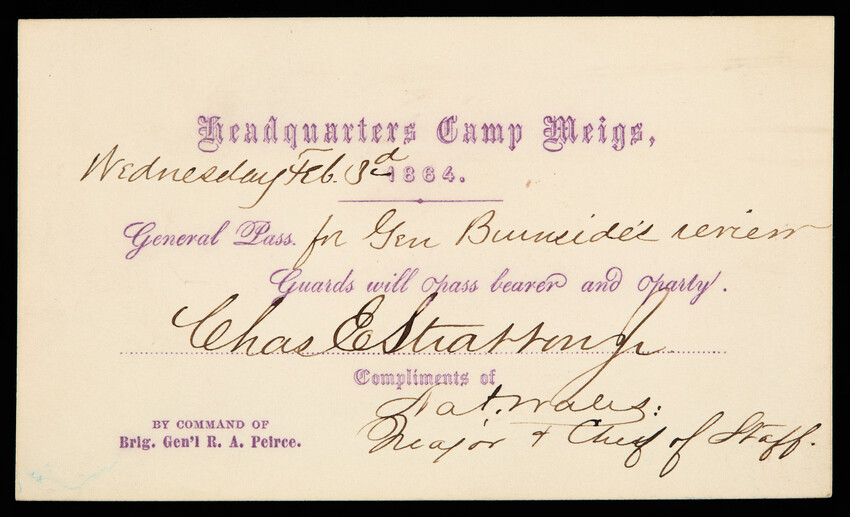 Headquarters Camp Meigs,
Wednesday Feb. 3d 1864.
General Pass. for Gen Burnside's review
Guards will pass bearer and party.
Chas E Stratton Jr
Compliments of
Nat. Wales:
Major & Chief of Staff.
BY COMMAND OF
Brig. Gen'l R. A. Peirce.